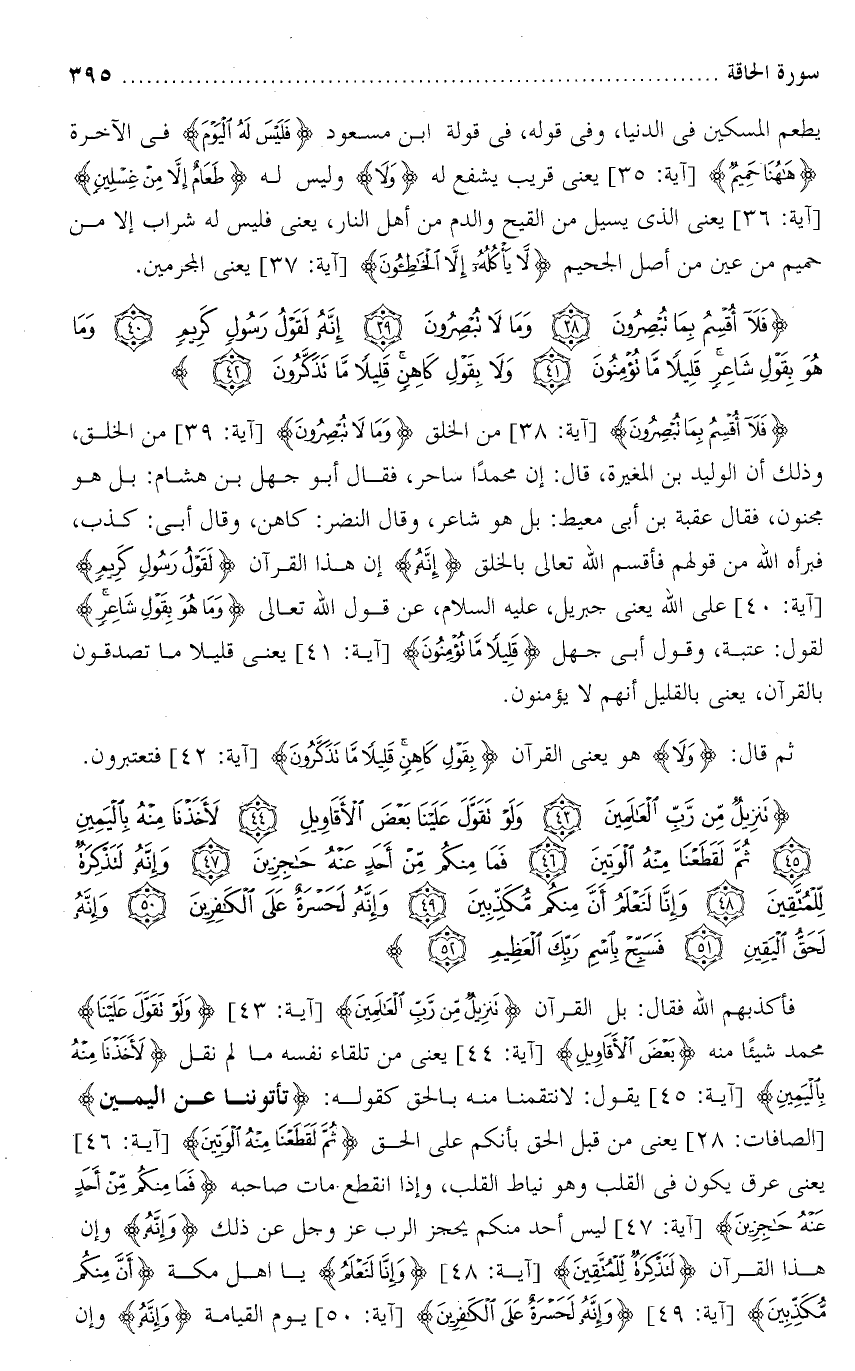 سورة الحاقة ........................................................................ ٣٩٥
يطعم المسكين فى الدنيا، وفى قوله، فى قولة ابن مسعود ﴿فَلَيْسَ لَهُ ٱلْيَوْمَ﴾ فـى الآخـرة
﴿هَٰهُنَا حَمِيمٌ﴾ [آية: ٣٥] يعنى قريب يشفع له ﴿وَلَا﴾ وليس لـه ﴿طَعَامٌ إِلَّا مِنْ غِسْلِينٍ﴾
[آية: ٣٦] يعنى الذى يسيل من القيح والدم من أهل النار، يعنى فليس له شراب إلا مـن
حميم من عين من أصل الجحيم ﴿لَّا يَأْكُلُهُۥٓ إِلَّا ٱلْخَٰطِـُٔونَ﴾ [آية: ٣٧] يعنى المجرمين.
﴿فَلَآ أُقْسِمُ بِمَا نُبْصِرُونَ ٣٨ وَمَا لَا نُبْصِرُونَ ٣٩ إِنَّهُۥ لَقَوْلُ رَسُولٍ كَرِيمٍ ٤٠ وَمَا
هُوَ بِقَوْلِ شَاعِرٍ ۚ قَلِيلًا مَّا نُؤْمِنُونَ ٤١ وَلَا بِقَوْلِ كَاهِنٍ ۚ قَلِيلًا مَّا نَذَكَّرُونَ ٤٢ ﴾
﴿فَلَآ أُقْسِمُ بِمَا نُبْصِرُونَ﴾ [آية: ٣٨] من الخلق ﴿وَمَا لَا نُبْصِرُونَ﴾ [آية: ٣٩] من الخلـق،
وذلك أن الوليد بن المغيرة، قال: إن محمدًا ساحر، فقـال أبـو جـهل بـن هشـام: بـل هـو
مجنون، فقال عقبة بن أبى معيط: بل هو شاعر، وقال النضر: كاهن، وقال أبـى: كـذب،
فبرأه الله من قولهم فأقسم الله تعالى بالخلق ﴿إِنَّهُۥ﴾ إن هـذا القـرآن ﴿لَقَوْلُ رَسُولٍ كَرِيمٍ﴾
[آية: ٤٠] على الله يعنى جبريل، عليه السلام، عن قـول الله تعـالى ﴿وَمَا هُوَ بِقَوْلِ شَاعِرٍ ۚ﴾
لقول: عتبـة، وقـول أبـى جـهل ﴿قَلِيلًا مَّا نُؤْمِنُونَ﴾ [آيـة: ٤١] يعنـى قليـلا مـا تصدقـون
بالقرآن، يعنى بالقليل أنهم لا يؤمنون.
ثم قال: ﴿وَلَا﴾ هو يعنى القرآن ﴿بِقَوْلِ كَاهِنٍ ۚ قَلِيلًا مَّا نَذَكَّرُونَ﴾ [آية: ٤٢] فتعتبرون.
﴿نَنزِيلٌ مِّن رَّبِّ ٱلْعَٰلَمِينَ ٤٣ وَلَوْ نَقَوَّلَ عَلَيْنَا بَعْضَ ٱلْأَقَاوِيلِ ٤٤ لَأَخَذْنَا مِنْهُ بِٱلْيَمِينِ
٤٥ ثُمَّ لَقَطَعْنَا مِنْهُ ٱلْوَتِينَ ٤٦ فَمَا مِنكُم مِّنْ أَحَدٍ عَنْهُ حَٰجِزِينَ ٤٧ وَإِنَّهُۥ لَتَذْكِرَةٌ
لِّلْمُتَّقِينَ ٤٨ وَإِنَّا لَنَعْلَمُ أَنَّ مِنكُم مُّكَذِّبِينَ ٤٩ وَإِنَّهُۥ لَحَسْرَةٌ عَلَى ٱلْكَٰفِرِينَ ٥٠ وَإِنَّهُۥ
لَحَقُّ ٱلْيَقِينِ ٥١ فَسَبِّحْ بِٱسْمِ رَبِّكَ ٱلْعَظِيمِ ٥٢ ﴾
فأكذبهم الله فقال: بل القـرآن ﴿نَنزِيلٌ مِّن رَّبِّ ٱلْعَٰلَمِينَ﴾ [آيـة: ٤٣] ﴿وَلَوْ نَقَوَّلَ عَلَيْنَا﴾
محمد شيئًا منه ﴿بَعْضَ ٱلْأَقَاوِيلِ﴾ [آية: ٤٤] يعنى من تلقاء نفسه مـا لم نقـل ﴿لَأَخَذْنَا مِنْهُ
بِٱلْيَمِينِ﴾ [آية: ٤٥] يقول: لانتقمنـا منـه بـالحق كقولـه: ﴿تأتوننـا عـن اليمـين﴾
[الصافات: ٢٨] يعنى من قبل الحق بأنكم على الحـق ﴿ثُمَّ لَقَطَعْنَا مِنْهُ ٱلْوَتِينَ﴾ [آيـة: ٤٦]
يعنى عرق يكون فى القلب وهو نياط القلب، وإذا انقطع مات صاحبه ﴿فَمَا مِنكُم مِّنْ أَحَدٍ
عَنْهُ حَٰجِزِينَ﴾ [آية: ٤٧] ليس أحد منكم يحجز الرب عز وجل عن ذلك ﴿وَإِنَّهُۥ﴾ وإن
هـذا القـرآن ﴿لَتَذْكِرَةٌ لِّلْمُتَّقِينَ﴾ [آيـة: ٤٨] ﴿وَإِنَّا لَنَعْلَمُ﴾ يـا اهـل مكـة ﴿أَنَّ مِنكُم
مُّكَذِّبِينَ﴾ [آية: ٤٩] ﴿وَإِنَّهُۥ لَحَسْرَةٌ عَلَى ٱلْكَٰفِرِينَ﴾ [آية: ٥٠] يـوم القيامـة ﴿وَإِنَّهُۥ﴾ وإن